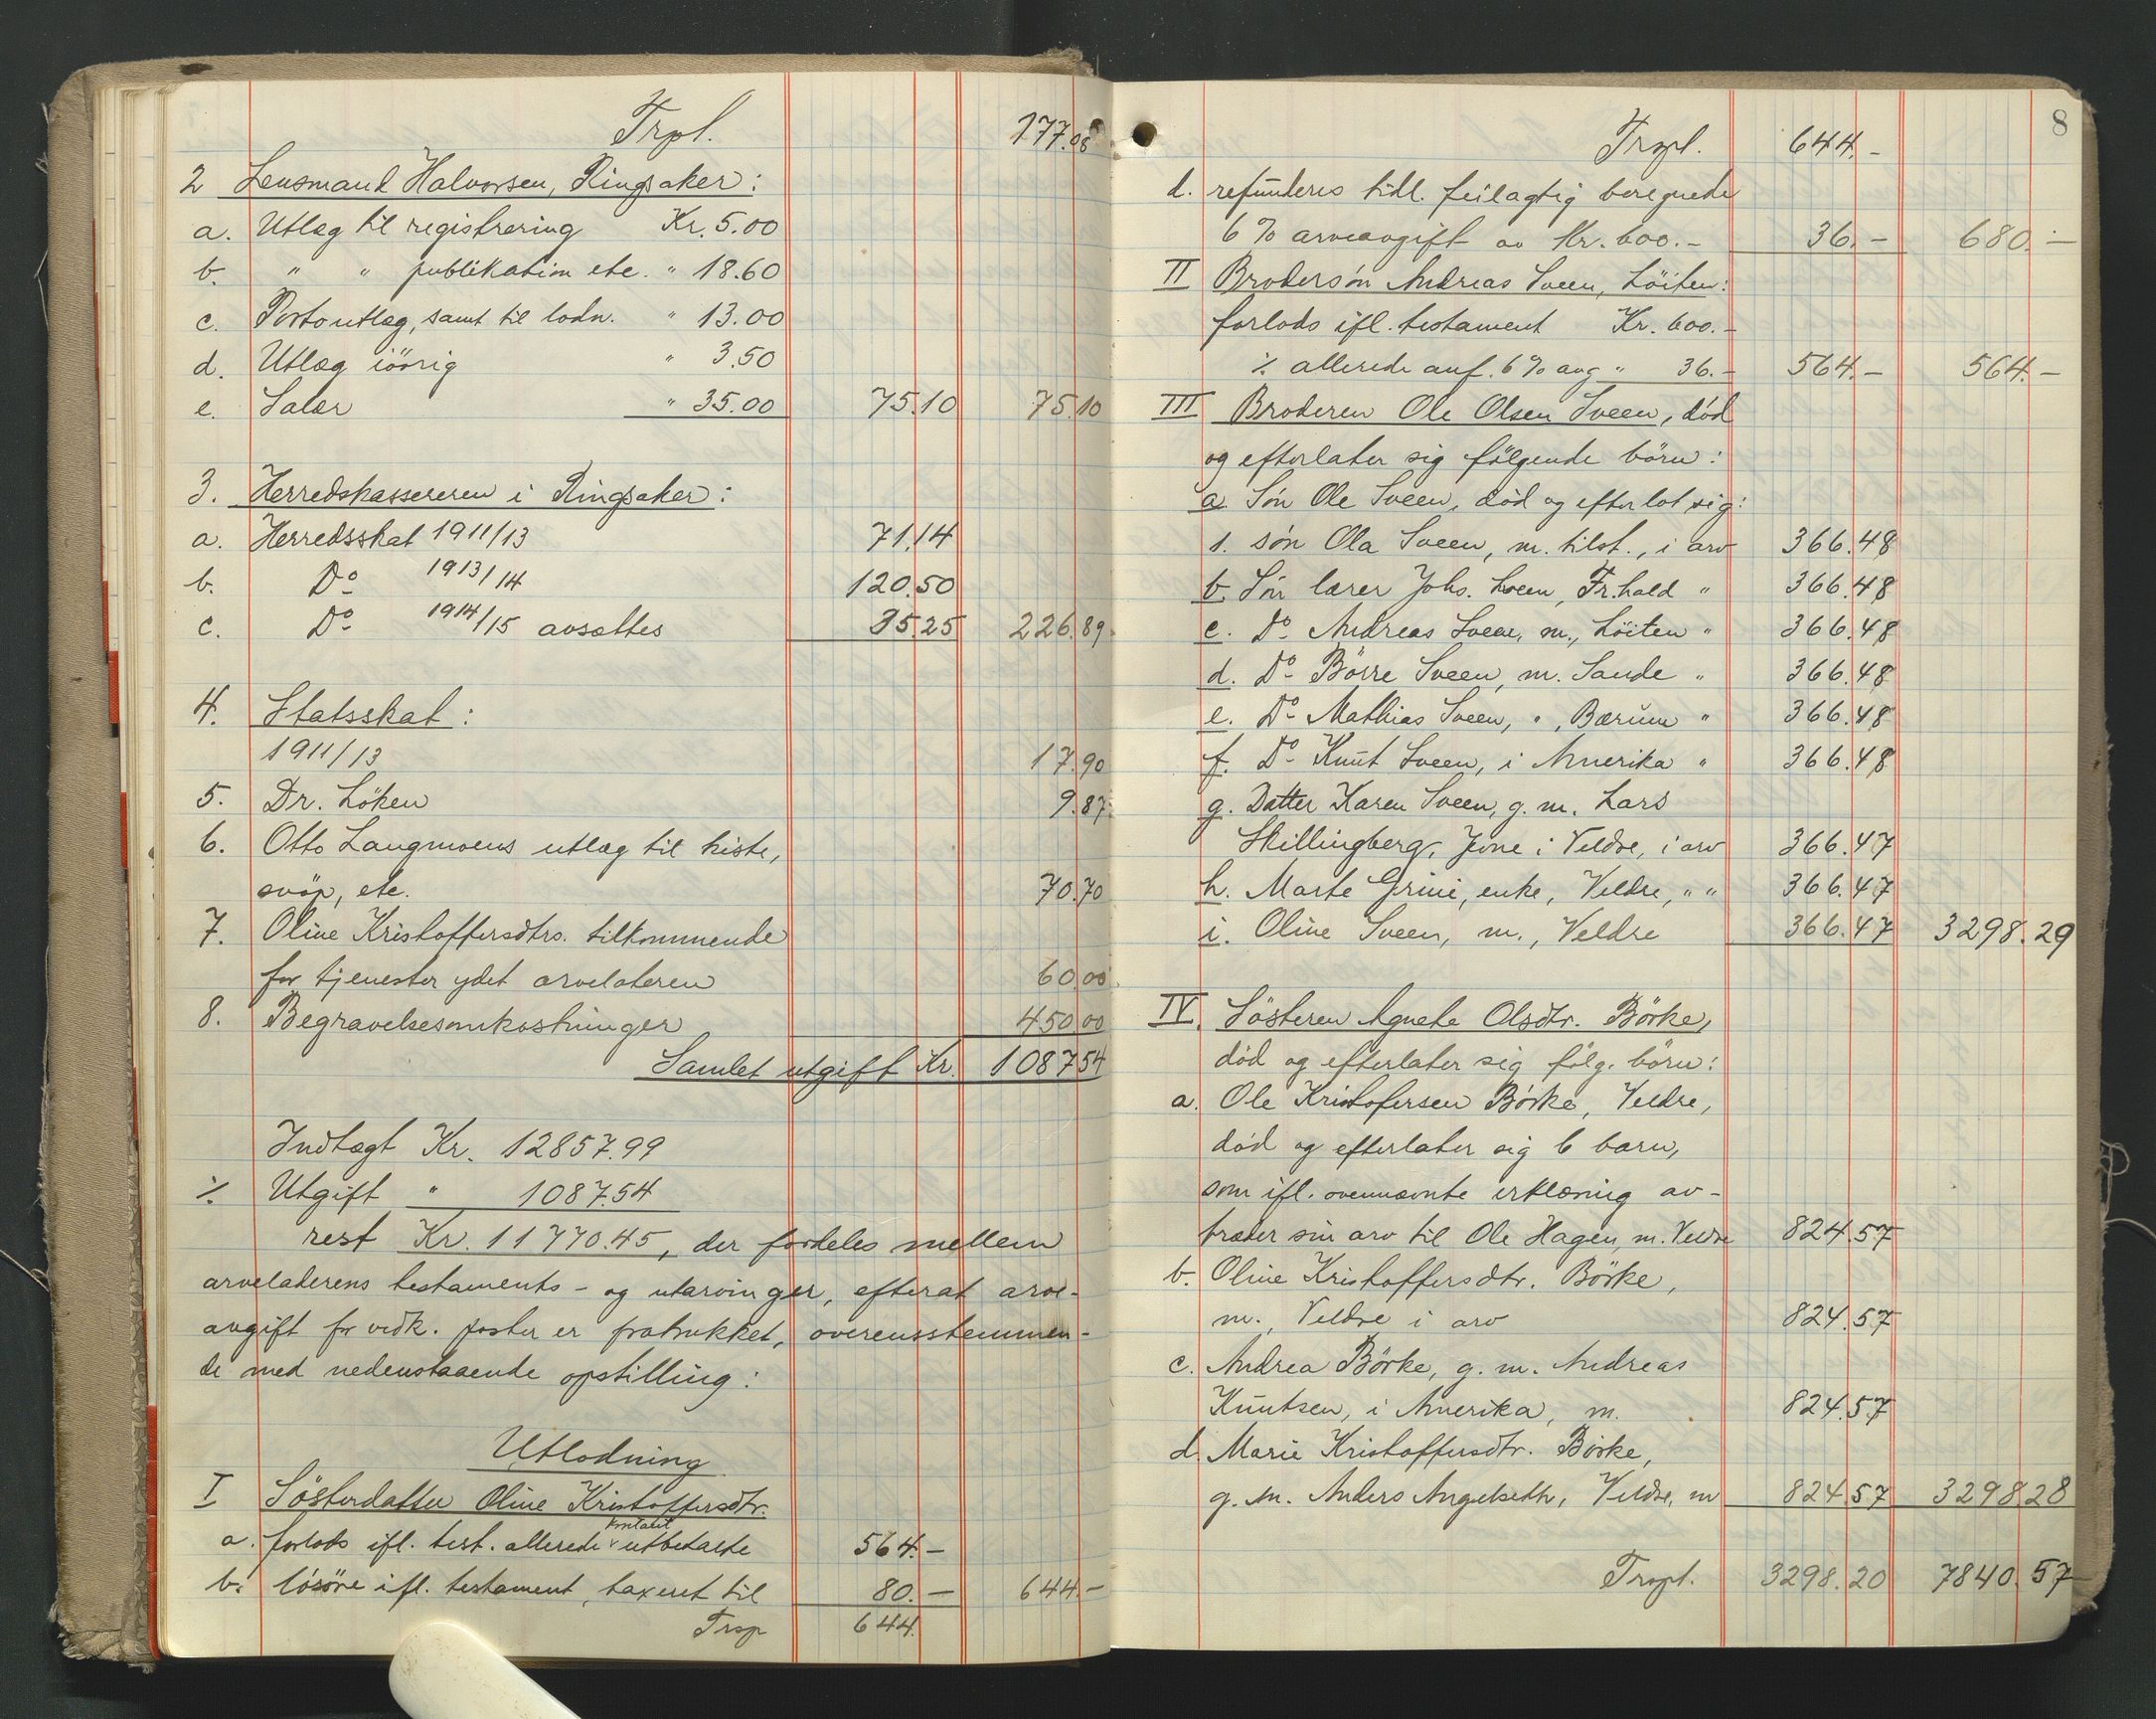 Trpl. 177.08
2 Lensmand Halvorsen, Ringsaker:
a. Utlæg til registrering Kr. 5.00
b. " " publikation etc. " 18.60
c. Portoutlæg, samt til lodn. " 13.00
d. Utlæg iövrig " 3.50
e. Salær " 35.00 75.10 75.10
3. Herredskassereren i Ringsaker:
a. Herredsskat 1911/13 71.14
b. Do 1913/14 120.50
c. Do 1914/15 avsættes 35.25 226.89
4. Statsskat:
1911/13 17.90
5. Dr. Löken 9.87
6. Otto Langmoens utlæg til kiste,
svöp, etc. 70.70
7. Oline Kristoffersdtrs. tilkommende
for tjenester ydet arvelateren 60.00
8. Begravelsesomkostninger 450.00
Samlet utgift Kr. 1087.54
Indtægt Kr. 12857.99
% Utgift " 1087.54
rest Kr. 11770.45, der fordeles mellem
arveladerens testaments- og utarvinger, efterat arve-
avgift for vedk. poster er fratrukket, overensstemmen-
de med nedenstaaende opstilling:
Utlodning
I Sösterdatter Oline Kristoffersdtr.
kontant
a. forlods ifl. test. allerede utbetalte 564.-
b. lösöre ifl. testament, taxeret til 80.- 644.-
Trsp 644.
8
Trspl. 644.-
d. refunderes tidl. feilagtig beregnede
6 % arveavgift av Kr. 600.- 36.- 680.-
II Brodersön Andreas Sveen, Löiten:
forlods ifl. testament Kr. 600.-
% allerede anf. 6 % avg " 36.- 564.- 564.-
III Broderen Ole Olsen Sveen, död
og efterlater sig fölgende börn:
a Sön Ole Sveen, död og efterlot sig:
1. sön Ola Sveen, m. tilst., i arv 366.48
b. Sön lærer Johs. Sveen, Fr.hald " 366.48
c. Do Andreas Sveen, m., Löiten " 366.48
d. Do Börre Sveen, m. Sande " 366.48
e. Do Mathias Sveen, ", Bærum " 366.48
f. Do Knut Sveen, i Amerika " 366.48
g. Datter Karen Sveen, g. m. Lars
Skillingberg, Jevne i Veldre, i arv 366.47
h. Marte Grini, enke, Veldre, " " 366.47
i. Oline Sveen, m., Veldre 366.47 3298.29
IV. Sösteren Agnete Olsdtr. Börke,
död og efterlater sig fölg. börn:
a. Ole Kristofersen Börke, Veldre,
död og efterlater sig 6 barn,
som ifl. ovennævnte erklæring av-
træder sin arv til Ole Hagen, m. Veldre 824.57
b. Oline Kristoffersdtr. Börke,
m., Veldre i arv 824.57
c. Andrea Börke, g. m. Andreas
Knutsen, i Amerika, m. 824.57
d. Marie Kristoffersdtr. Börke,
g. m. Anders Angelseth, Veldre, m 824.57 3298.28
Trspl. 3298.20 7840.57